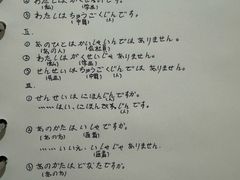 ② わたしはがくせいです。
(私) (学生)
③ わたしはちゅうごくじんです。
(私) (中国) (人)
五.
① あのひとはかいしゃいんではありません。
(あの人) (会社員)
② わたしはがくせいではありません。
(私) (学生)
③ せんせいはちゅうごくじんではありません。
(先生) (中国) (人)
六.
① せんせいはにほんじんですか。
……はい、にほんじんです。
② あのかたはいしゃですか。
(あの方) (医者)
……いいえ、いしゃではありません。
(医者)
③ あのかたはどなたですか。
(あの方)